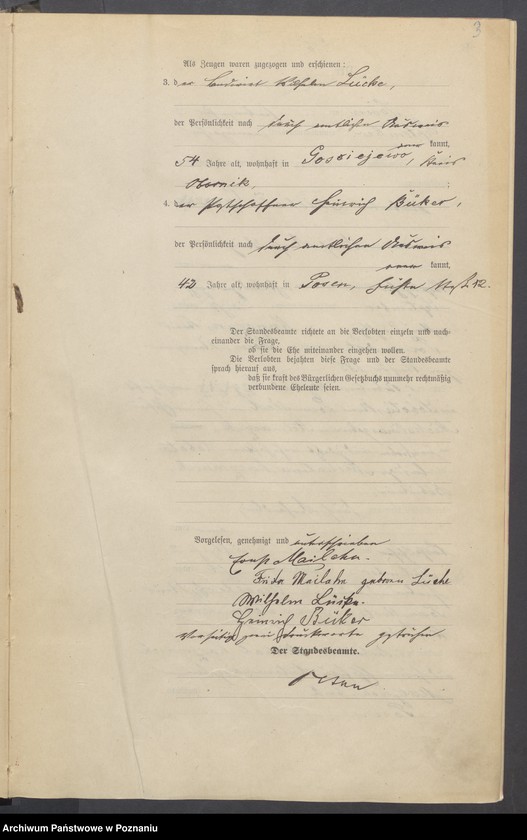 3
Als Zeugen waren zugezogen und erschienen:
3. der Landwirt Wilhelm Lücke,
der Persönlichkeit nach durch amtlichen Ausweis
kannt,
54 Jahre alt, wohnhaft in Gossiejewo, Kreis
Obornik;
4. der Postschaffner Heinrich Büker,
der Persönlichkeit nach durch amtlichen Ausweis
kannt,
42 Jahre alt, wohnhaft in Posen,
Der Standesbeamte richtete an die Verlobten einzeln und nach-
einander die Frage,
ob sie die Ehe miteinander eingehen wollen.
Die Verlobten bejahten diese Frage und der Standesbeamte
sprach hierauf aus,
daß sie kraft des Bürgerlichen Gesetzbuchs nunmehr rechtmäßig
verbundene Eheleute seien.
Vorgelesen, genehmigt und unterschrieben
Mailahn.
Frida Mailahn geboren Lücke
Wilhelm Lücke.
Heinrich Büker
Vorseitig zwei Druckworte gestrichen.
Der Standesbeamte.
Archiwum Państwowe w Poznaniu